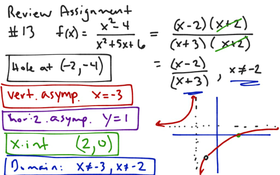 Review Assignment
#13 f(x) = x²-4 / x²+5x+6 = (x-2)(x+2) / (x+3)(x+2)
Hole at (-2, -4)
= (x-2) / (x+3) , x≠-2
vert. asymp. x=-3
horiz. asymp. y=1
x.int (2,0)
Domain: x≠-3, x≠-2